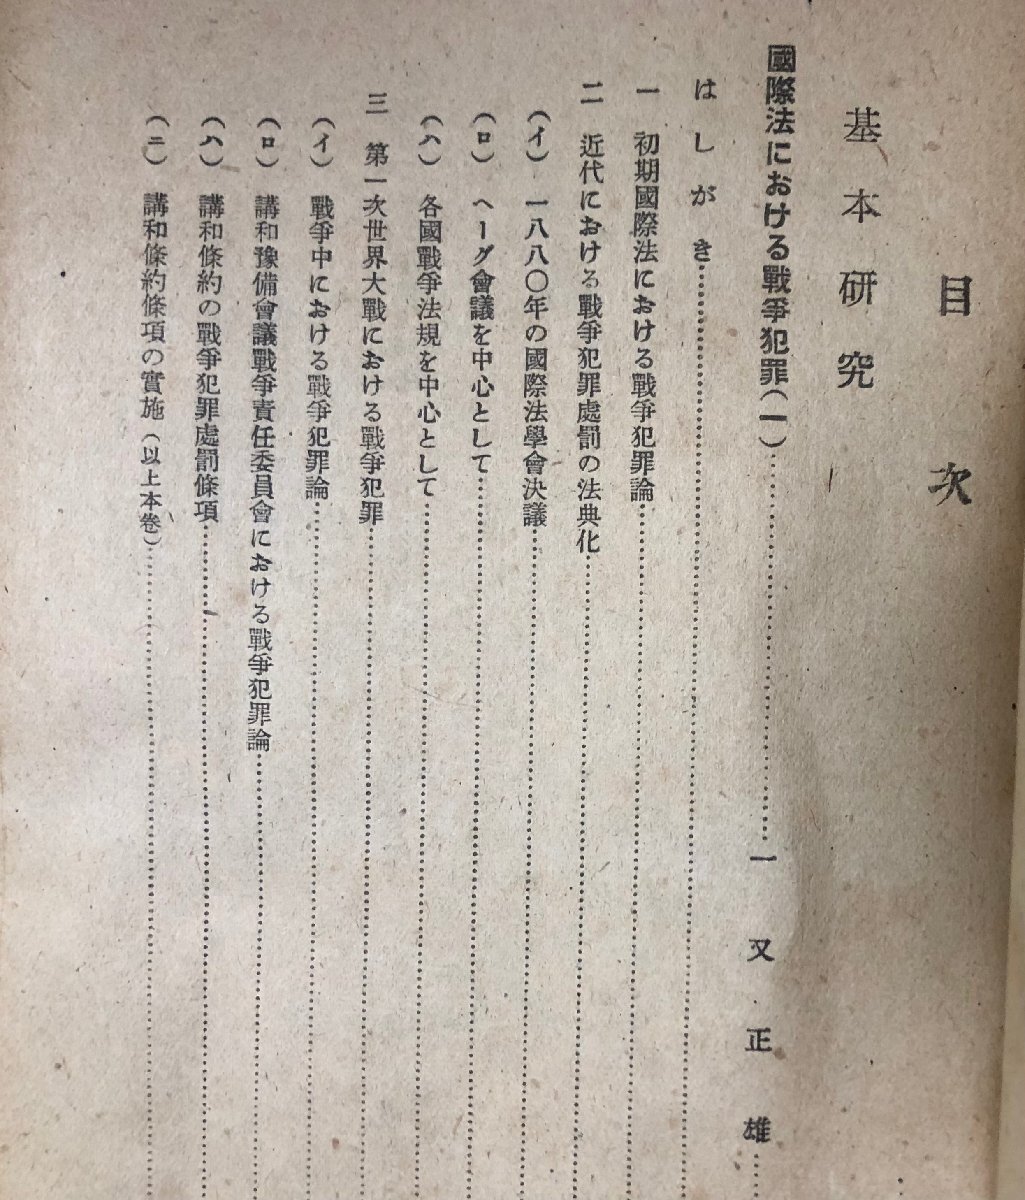 目次
基本研究
國際法における戰爭犯罪(一)……一又正雄……
はしがき……
一 初期國際法における戰爭犯罪論……
二 近代における戰爭犯罪處罰の法典化……
(イ) 一八八〇年の國際法學會決議……
(ロ) ヘーグ會議を中心として……
(ハ) 各國戰爭法規を中心として……
三 第一次世界大戰における戰爭犯罪……
(イ) 戰爭中における戰爭犯罪論……
(ロ) 講和豫備會議戰爭責任委員會における戰爭犯罪論……
(ハ) 講和條約の戰爭犯罪處罰條項……
(ニ) 講和條約條項の實施(以上本卷)……